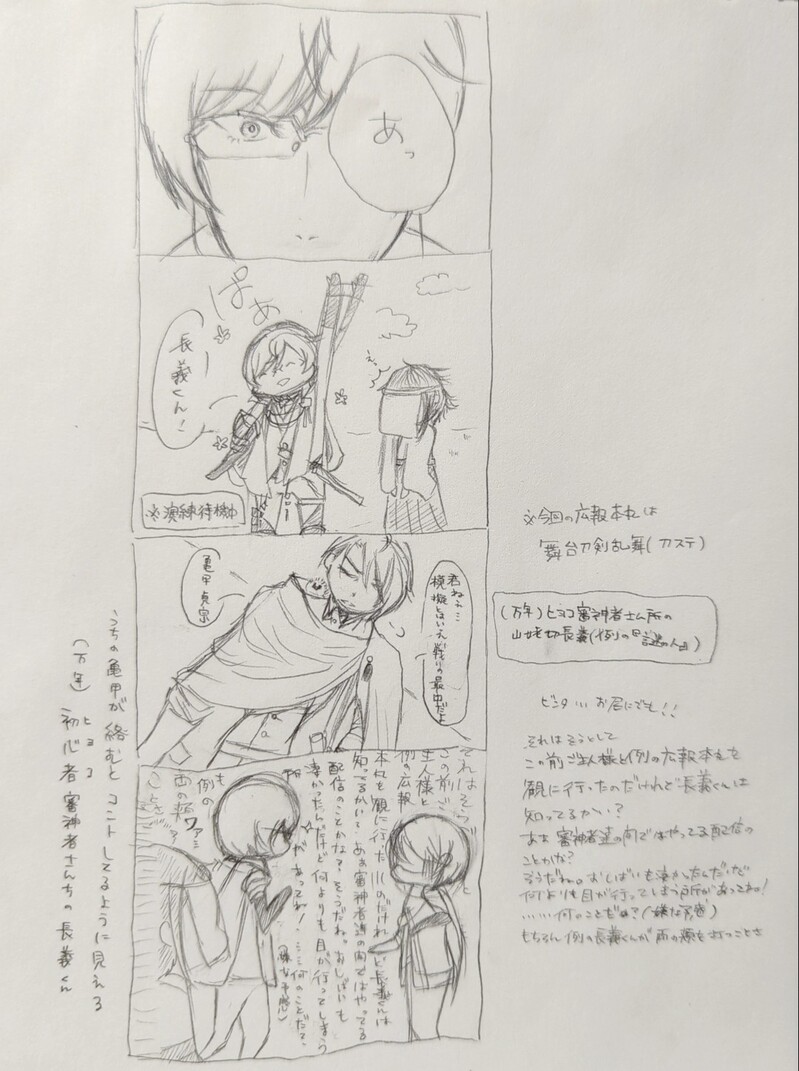 あっ
ぱあ
長義くん!
えっ
※演練待機中
君ねぇ…
模擬とはいえ戦いの最中だよ
亀甲貞宗
それはそうと
この前ご
主人様と
例の広報
本丸を観に行ったのだけれど長義くんは
知ってるかい?あぁ審神者達の間ではやってる
配信のことかな?そうだね。おしばいも
凄かったんだけど何よりも目が行ってしまう
所があってね!……何のことだ?
(嫌な予感)
も
例の
両の頬
ことさ
※今回の広報本丸は
舞台刀剣乱舞(刀ステ)
(万年)ヒヨコ審神者さん所の
山姥切長義(例の『謎の人』)
ビンタ…お君にでも!!
それはそうとして
この前ご主人様と例の広報本丸を
観に行ったのだけれど長義くんは
知ってるかい?
あぁ審神者達の間ではやってる配信の
ことかな?
そうだね。おしばいも凄かったんだ、だ
何よりも目が行ってしまう所があってね!
……何のことだ?(嫌な予感)
もちろん例の長義くんが両の頬を打つことさ
うちの亀甲が絡むとコントしてるように見える
(万年)初心者審神者さんちの長義くん
ヒヨコ